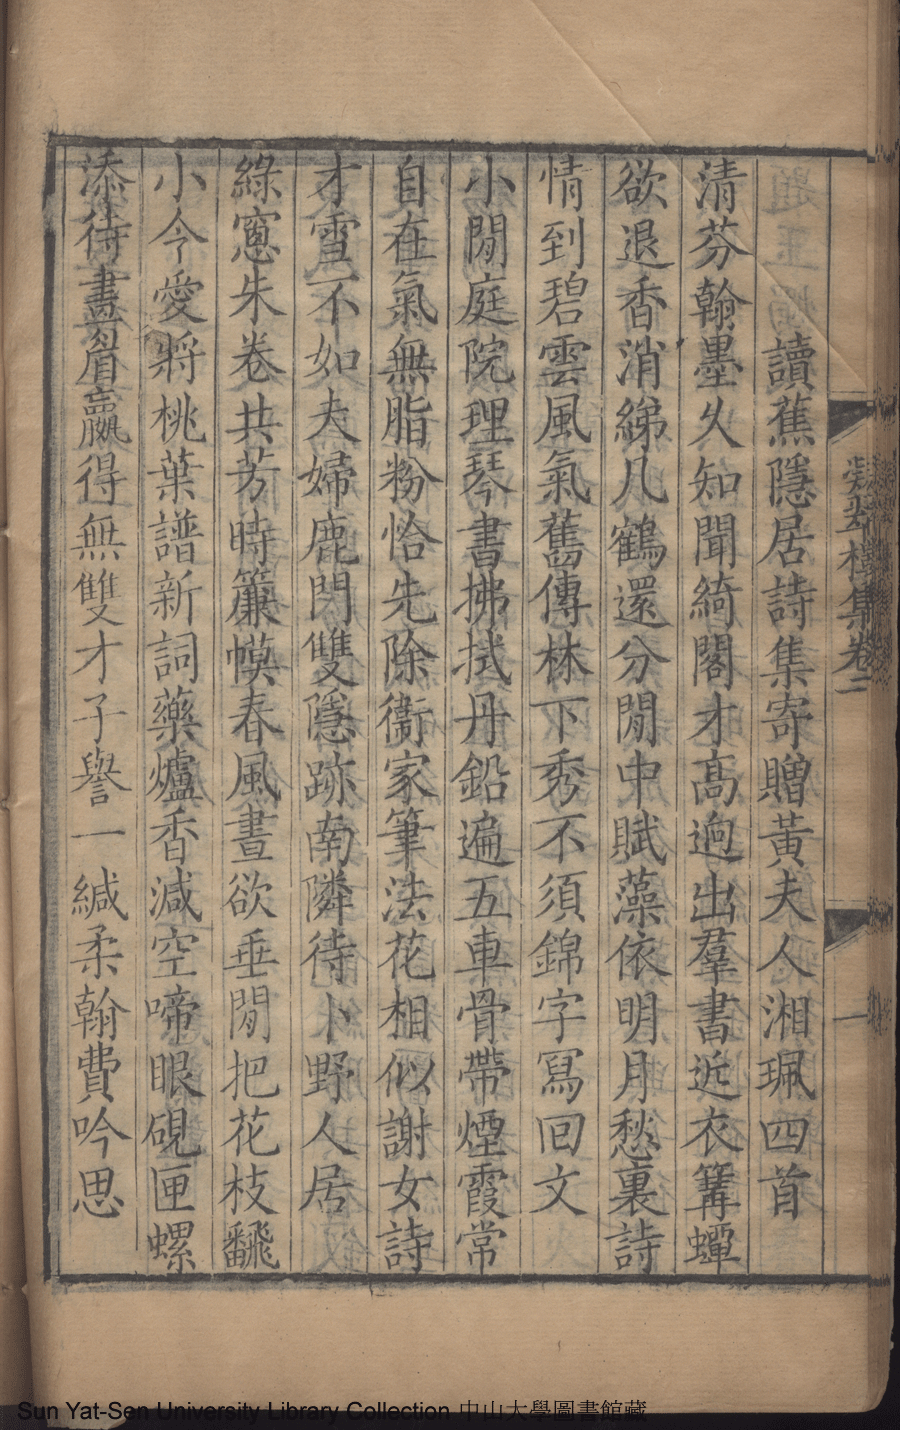 讀蕉隱居詩集寄贈黃夫人湘珮四首
清芬翰墨久知聞綺閣才高逈出羣書近衣篝蟫
欲退香消綈几鶴還分閒中賦藻依明月愁裏詩
情到碧雲風氣舊傳林下秀不須錦字冩回文
小閒庭院理琴書拂拭丹鉛遍五車骨帶煙霞常
自在氣無脂粉恰先除衞家筆法花相似謝女詩
才雪不如夫婦鹿門雙隱跡南隣待卜野人居
綠窻朱卷共芳時簾幙春風晝欲垂閒把花枝飜
小令愛將桃葉譜新詞藥爐香減空啼眼硯匣螺
添待畫眉贏得無雙才子譽一緘柔翰費吟思
凝翠樓集卷二
一
Sun Yat-Sen University Library Collection 中山大學圖書館藏